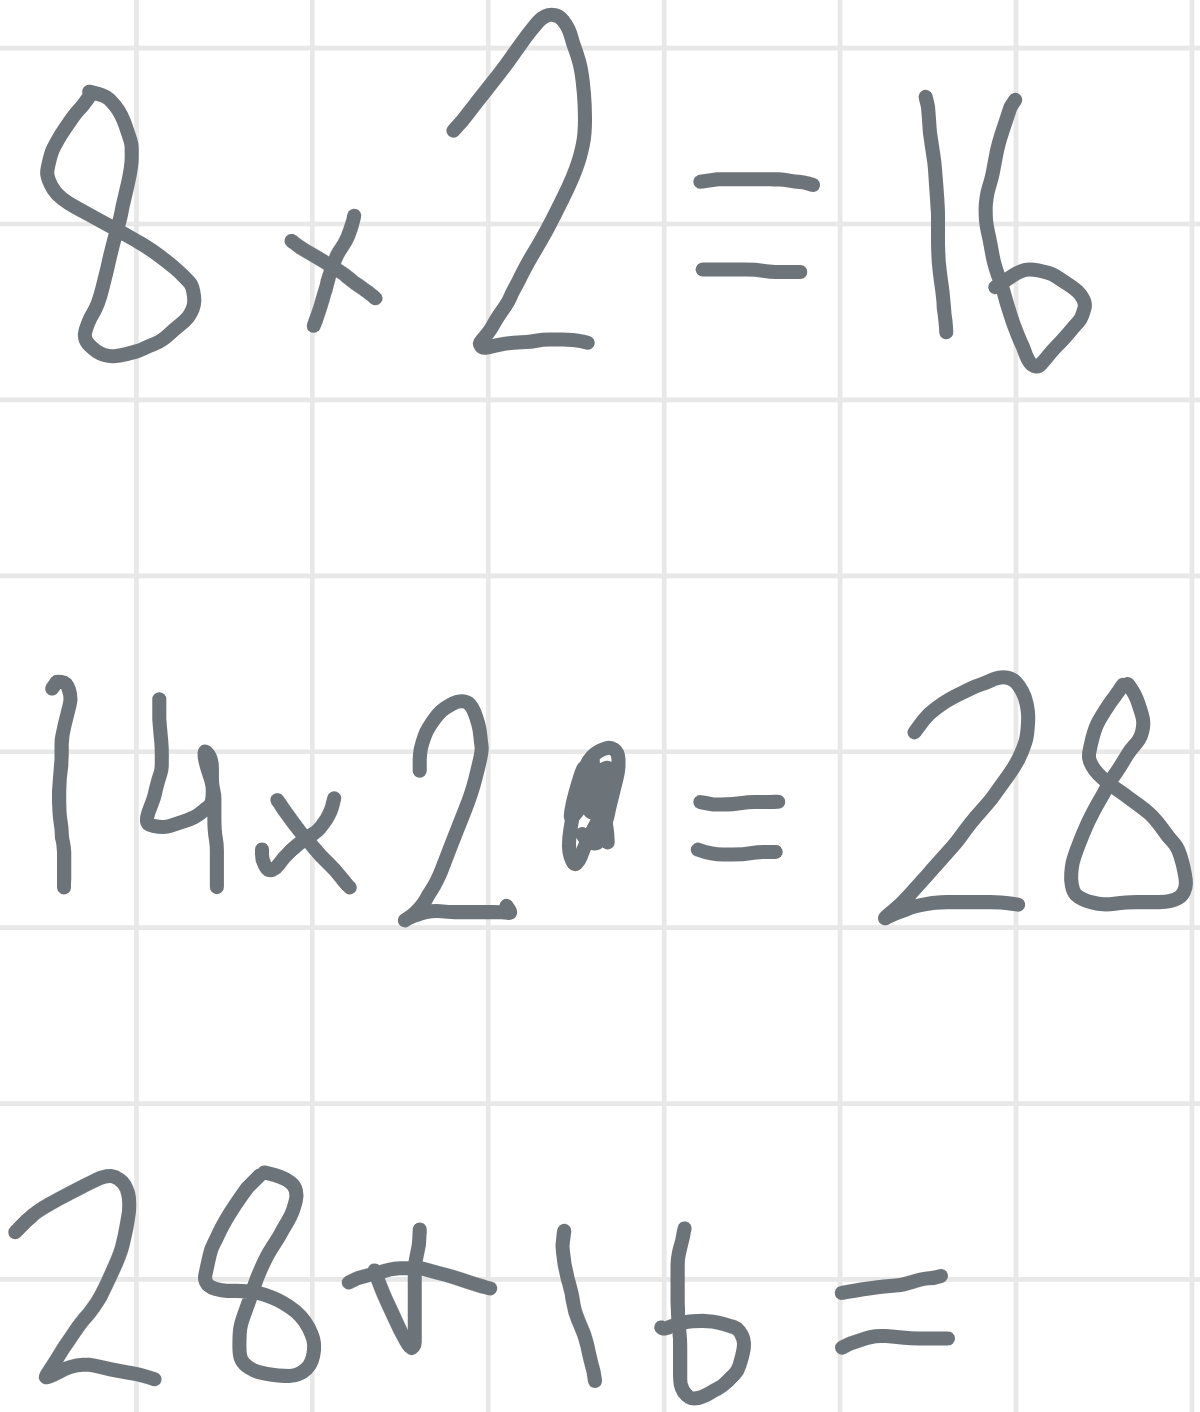 8 x 2 = 16
14 x 2 = 28
28 + 16 =